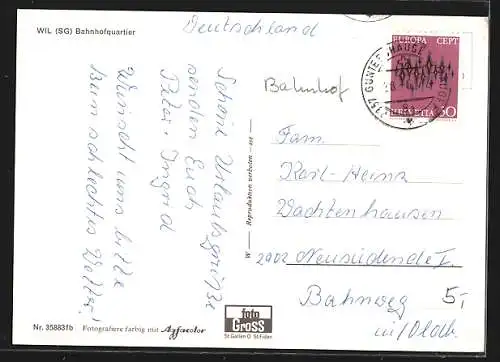 WIL (SG) Bahnhofquartier
Deutschland
Schöne Urlaubsgrüße
senden Euch
Peter, Ingrid
Wünscht uns bitte
kein schlechtes Wetter!
Bahnhof
EUROPA CEPT
HELVETIA 30
Fam.
Karl-Heinz
Wachtenhausen
2902 Neusüdende I.
Bahnweg
ü/Oldb.
5,-
W — Reproduktion verboten — est —
foto
GROSS
St. Gallen O. St. Fiden
Nr. 35883fb Fotografiere farbig mit Agfacolor